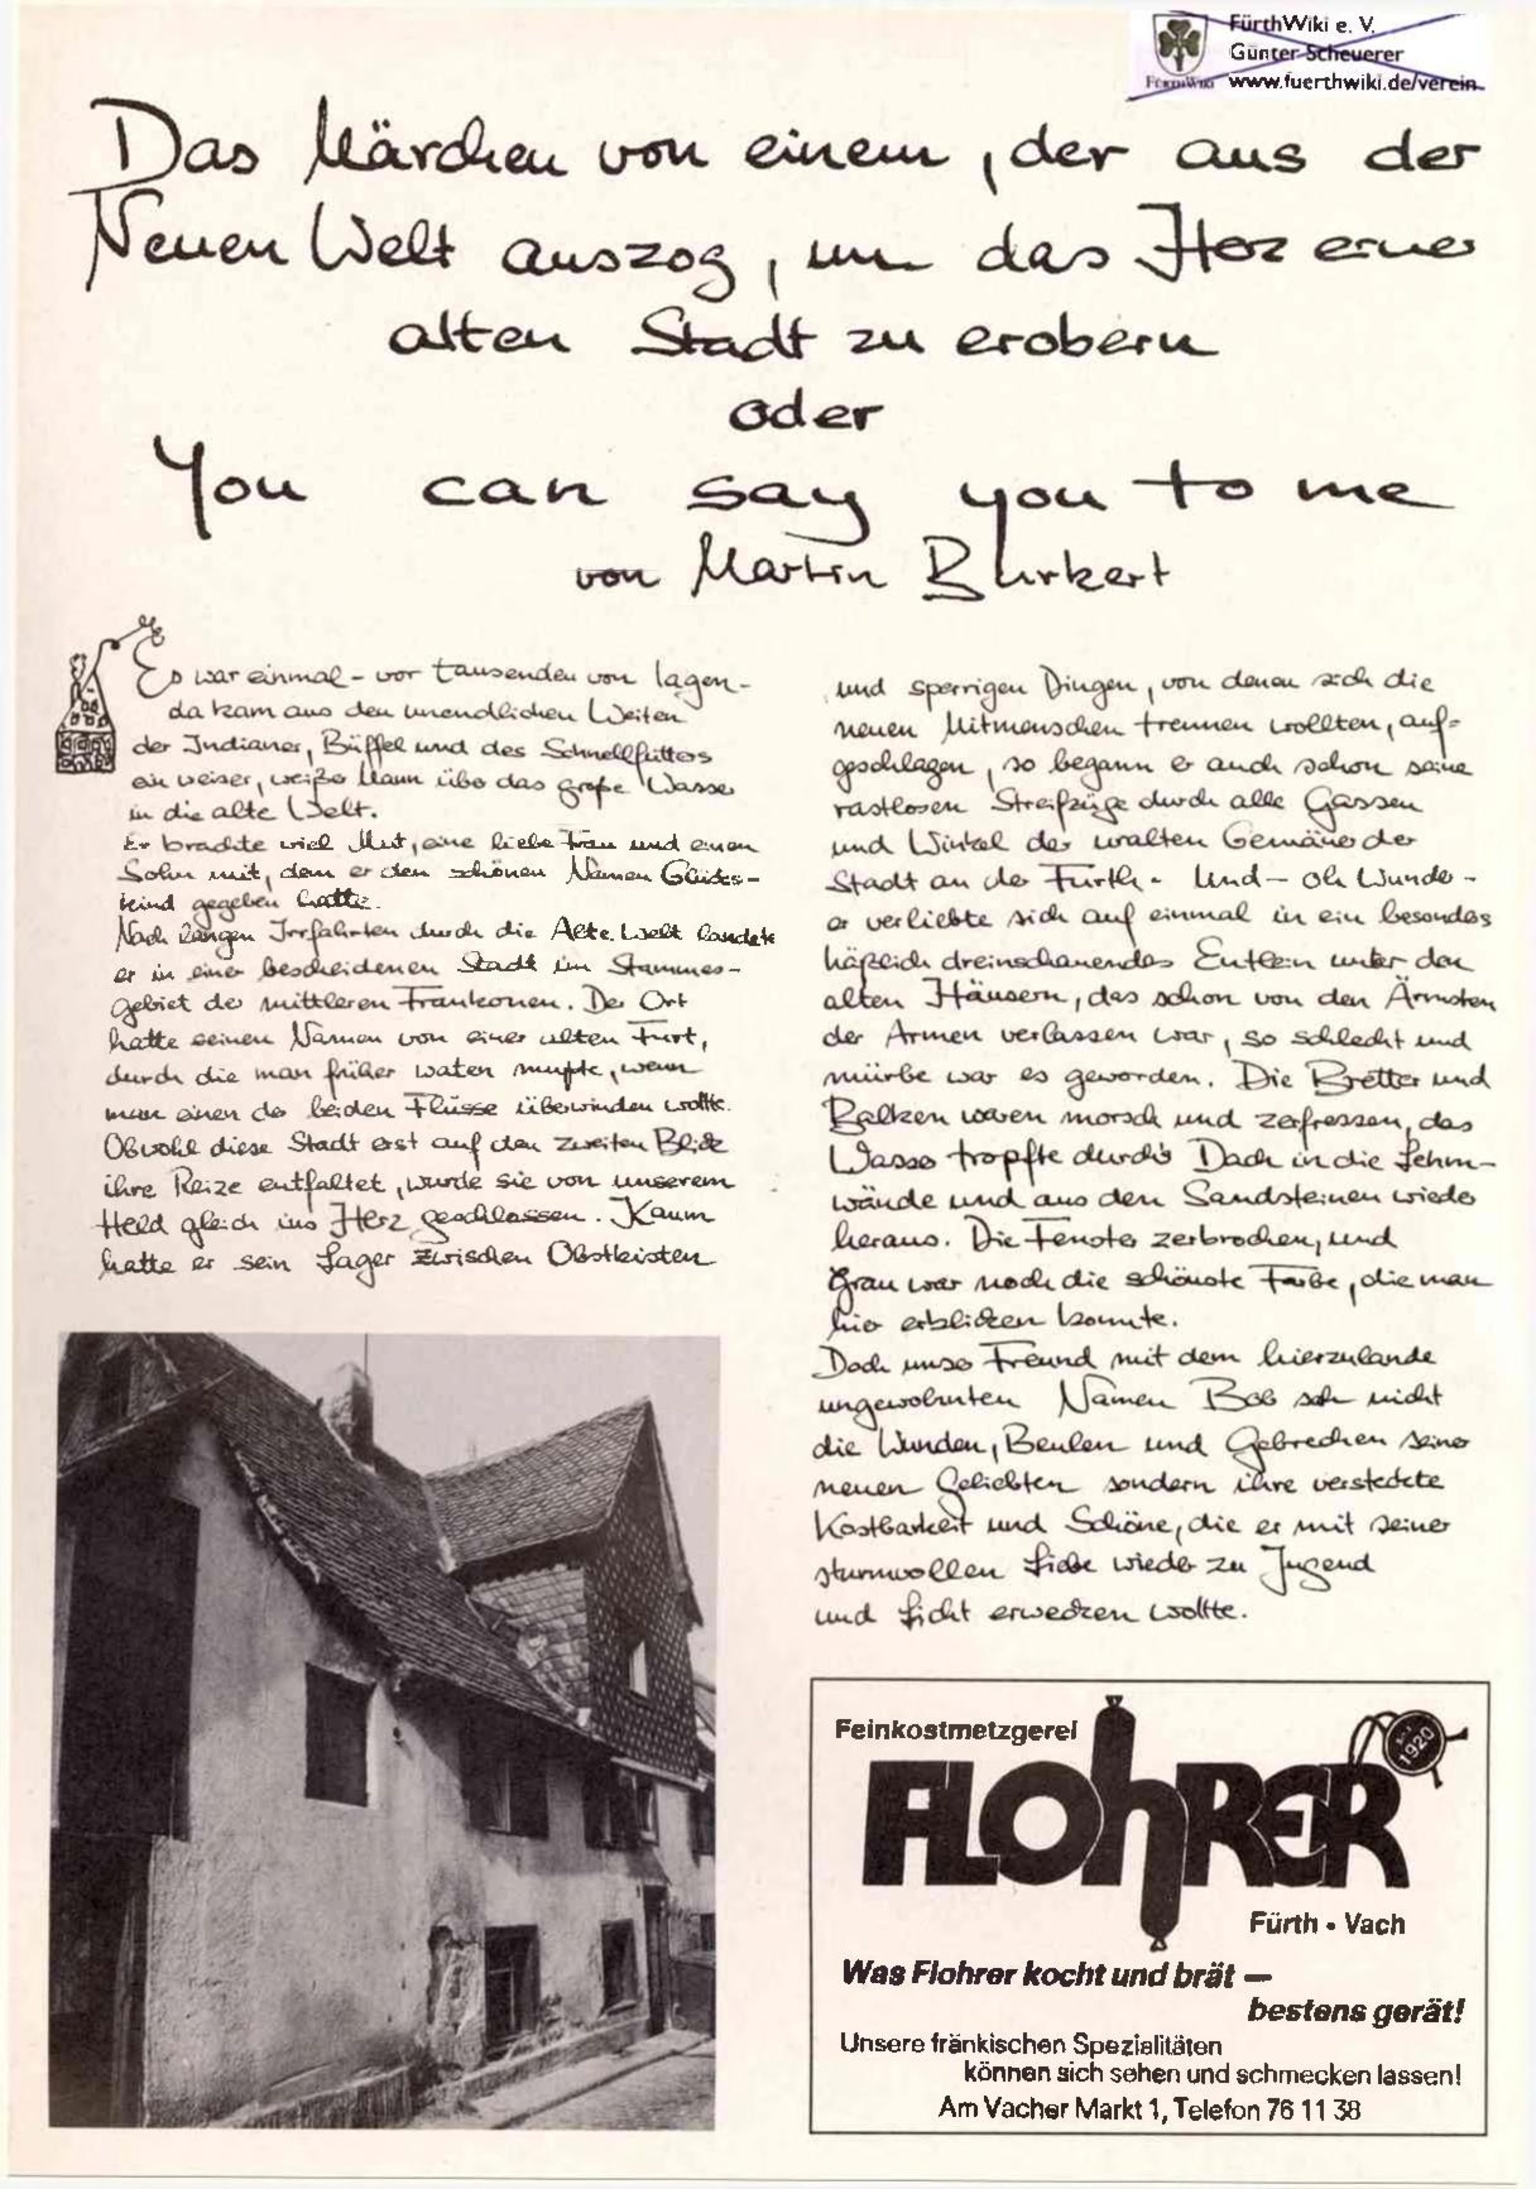 FürthWiki e. V.
Günter Scheuerer
FürthWiki www.fuerthwiki.de/verein
Das Märchen von einem, der aus der
Neuen Welt auszog, um das Herz einer
alten Stadt zu erobern
oder
You can say you to me
von Martin Burkert
Es war einmal - vor tausenden von Tagen -
da kam aus den unendlichen Weiten
der Indianer, Büffel und des Schnellfutters
ein weiser, weißer Mann über das große Wasser
in die alte Welt.
Er brachte viel Mut, eine liebe Frau und einen
Sohn mit, dem er den schönen Namen Glücks-
kind gegeben hatte.
Nach langen Irrfahrten durch die Alte Welt landete
er in einer bescheidenen Stadt im Stammes-
gebiet der mittleren Frankonen. Der Ort
hatte seinen Namen von einer alten Furt,
durch die man früher waten mußte, wenn
man einen der beiden Flüsse überwinden wollte.
Obwohl diese Stadt erst auf den zweiten Blick
ihre Reize entfaltet, wurde sie von unserem
Held gleich ins Herz geschlossen. Kaum
hatte er sein Lager zwischen Obstkisten
und sperrigen Dingen, von denen sich die
neuen Mitmenschen trennen wollten, auf-
geschlagen, so begann er auch schon seine
rastlosen Streifzüge durch alle Gassen
und Winkel der uralten Gemäuer der
Stadt an der Fürth. Und - oh Wunder -
er verliebte sich auf einmal in ein besonders
häßlich dreinschauendes Entlein unter den
alten Häusern, das schon von den Ärmsten
der Armen verlassen war, so schlecht und
mürbe war es geworden. Die Bretter und
Balken waren morsch und zerfressen, das
Wasser tropfte durch's Dach in die Lehm-
wände und aus den Sandsteinen wieder
heraus. Die Fenster zerbrochen, und
Grau war noch die schönste Farbe, die man
hier erblicken konnte.
Doch unser Freund mit dem hierzulande
ungewohnten Namen Bob sah nicht
die Wunden, Beulen und Gebrechen seiner
neuen Geliebten sondern ihre versteckte
Kostbarkeit und Schöne, die er mit seiner
sturmvollen Liebe wieder zu Jugend
und Licht erwecken wollte.
Feinkostmetzgerei
1920
FLOhRER
Fürth • Vach
Was Flohrer kocht und brät —
bestens gerät!
Unsere fränkischen Spezialitäten
können sich sehen und schmecken lassen!
Am Vacher Markt 1, Telefon 76 11 38